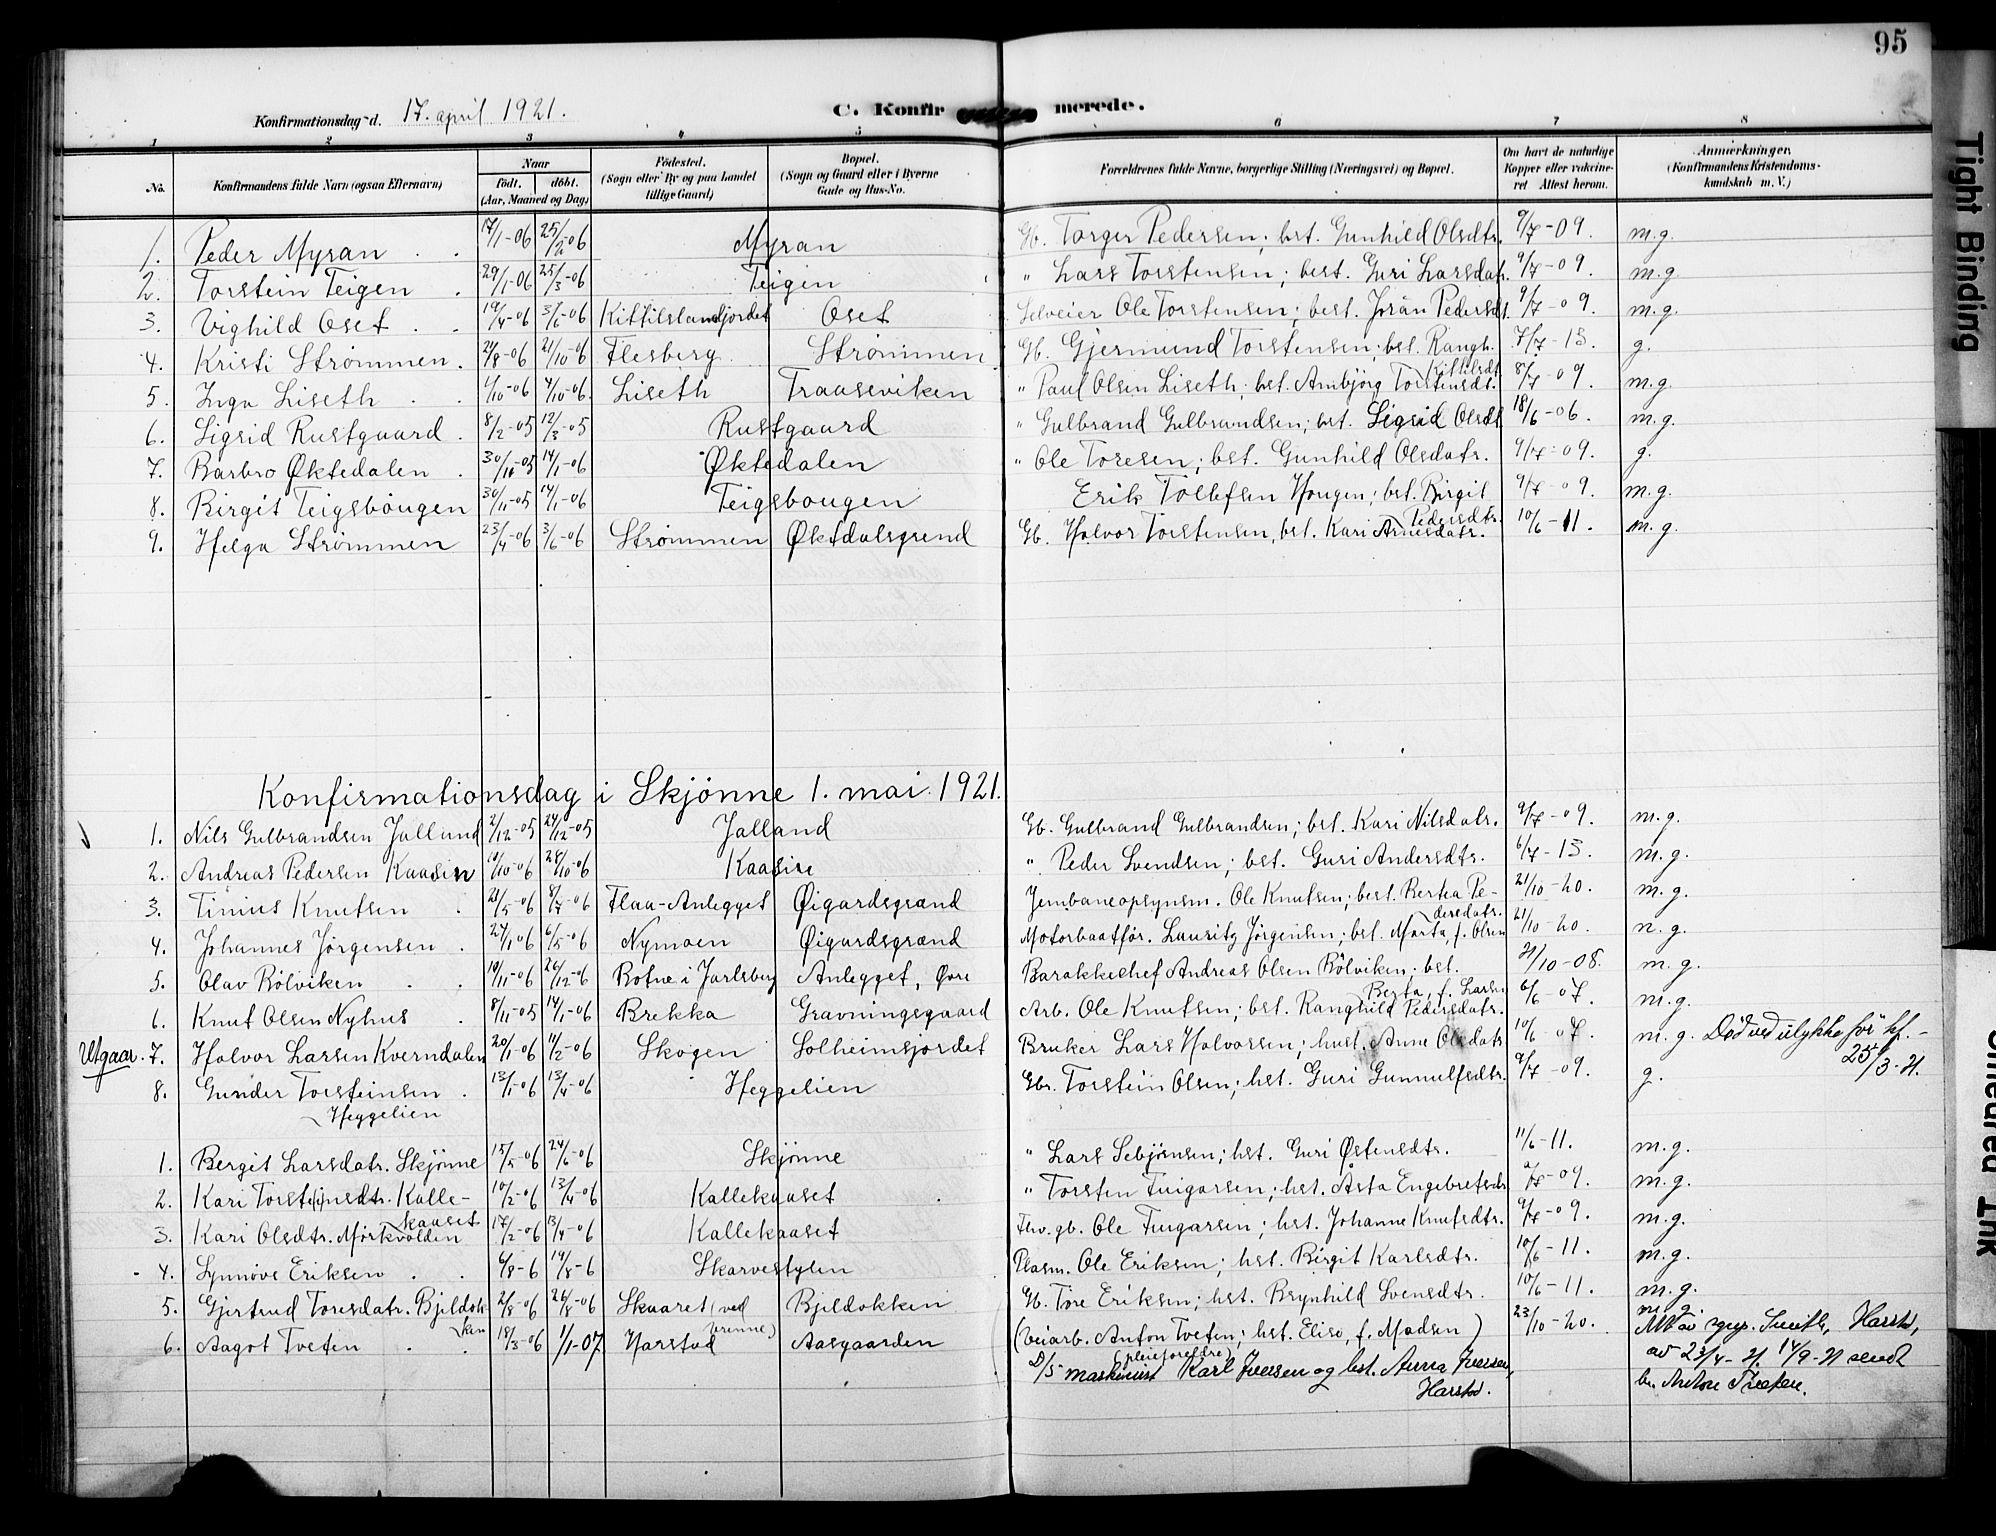 95
Konfirmationsdag d. 17. april 1921.
C. Konfirmerede.
1 2 3 4 5 6 7 8
No. Konfirmandens fulde Navn (ogsaa Efternavn) Naar født. døbt. (Aar, Maaned og Dag) Fødested. (Sogn eller By og paa Landet tillige Gaard) Bopæl. (Sogn og Gaard eller i Byerne Gade og Hus-No. Forældrenes fulde Navne, borgerlige Stilling (Næringsvei) og Bopæl. Om havt de naturlige Kopper eller vakcineret Attest herom. Anmærkninger. (Konfirmandens Kristendomskundskab m. V.)
1. Peder Myran 17/1-06 25/2-06 Myran Gb. Torger Pedersen; hst. Gunhild Olsdtr. 9/7-09. m.g.
2. Torstein Teigen 29/1-06 25/3-06 Teigen " Lars Torstensen; hst. Guri Larsdatr. 9/7-09. m.g
3. Vighild Oset 19/4-06 3/6-06 Kittilslandjordet Oset Selveier Ole Torstensen; hst. Jøran Pedersdt. 9/7-09. m.g.
4. Kristi Strømmen. 24/8-06 21/10-06 Flesberg Strømmen Gb. Gjermund Torstensen; hst. Rangh. Kittilsdt. 7/7-13. g.
5. Inga Liseth 4/10-06 4/10-06. Liseth Traaseviken " Paul Olsen Liseth; hst. Ambjørg Torstensdt. 8/7-09. m.g.
6. Sigrid Rustgaard 8/2-05 12/3-05 Rustgaard " Gulbrand Gulbrandsen; hst. Sigrid Olsdt 18/6-06. m.g.
7. Barbro Øktedalen 30/10-05 14/1-06 Øktedalen " Ole Toresen; hst. Gunhild Olsdatr. 9/7-09. g.
8. Birgit Teigsbøugen 30/11-05 14/1-06 Teigsbøugen Erik Tollefsen Hougen; hst. Birgit Pedersdtr. 9/7-09. m.g.
9. Helga Strømmen 23/4-06 3/6-06 Strømmen Øktdalsgrend Gb. Halvor Torstensen, hst. Kari Arnesdatr. 10/6-11. m.g.
Konfirmationsdag i Skjønne 1. mai 1921.
1. Nils Gulbrandsen Jalland 2/12-05 24/12-05 Jalland Gb. Gulbrand Gulbrandsen; hst. Kari Nilsdatr. 9/7-09. m.g.
2. Andreas Pedersen Kaasin 10/10-06 28/10-06 Kaasin " Peder Svendsen; hst. Guri Andersdtr. 6/7-13. m.g.
3. Tinius Knutsen 21/5-06 8/7-06 Flaa-Anlegget Øigardsgrand Jernbaneopsynsm. Ole Knutsen; hst. Berta Pedersdatr. 21/10-20. m.g.
4. Johannes Jørgensen 27/1 06 6/5-06 Nymoen Øigardsgrand Motorbaatfør. Lauritz Jørgensen; hst. Marta, f. Olsen 21/10-20. m.g.
5. Olav Rølviken 19/11-06 26/12-06 Botne i Jarlsberg Anlegget, Øvre Barakkechef Andreas Olsen Rølviken; hst. Berta, f. Larsn 21/10-08. m.g.
6. Knut Olsen Nyhus 8/11-05 14/1-06 Brekka Gravningsgaard Arb. Ole Knutsen; hst. Ranghild Pedersdatr. 6/6-07. m.g.
Utgaar. 7. Halvor Larsen Kverndalen 20/1-06 14/2-06 Skogen Solheimsjordet Bruker Lars Halvorsen; hust. Anne Olsdatr 10/6-07. m.g. Død ved ulykke før kf. - 25/3-21.
8. Gunder Torsteinsen Heggelien 13/1-06 13/4-06 Heggelien Gbr. Torstein Olsen; hst. Guri Gunnulfsdtr. 9/7-09. g.
1. Bergit Larsdatr. Skjønne 15/5-06 24/6-06 Skjønne " Lars Sebjønsen; hst. Guri Østensdtr. 11/6-11. m.g.
2. Kari Torst(e)insdtr. Kallekaaset 10/2-06 13/4-06 Kallekaaset " Torsten Fingarsen; hst. Åsta Engebretsdr. 9/7-09. m.g.
3. Kari Olsdtr. Mørkvolden 17/2-06 13/4-06 Kallekaaset Fhv. gb. Ole Fingarsen; hst. Johanne Knutsdtr. 9/7-09. m.g.
4. Synnøve Eriksen 4/8-6 14/8-6 Skarvestylen Plasm. Ole Eriksen; hst. Birgit Karlsdtr. 10/6-11. m.g.
5. Gjertrud Toresdatr. Bjeldokken 2/8-06 26/8-06 Skaaret (ved Vrenne) Bjeldokken Gb. Tore Eriksen; hst. Brynhild Svensdtr. 10/6-11. m.g.
6. Aagot Tveten 18/3-06 1/1-07 Harstad Aasgaarden (Veiarb. Anton Tveten; hst. Elise, f. Madsen) (pleieforeldre) 23/10-20. m.g.
D/s maskinist Karl Iversen og hst. Anna Iversen, Harstad.
Harstad, av 23/4-21. 14/9-21 sendt
Anton Tveten.
Tight Binding
Smeared Ink